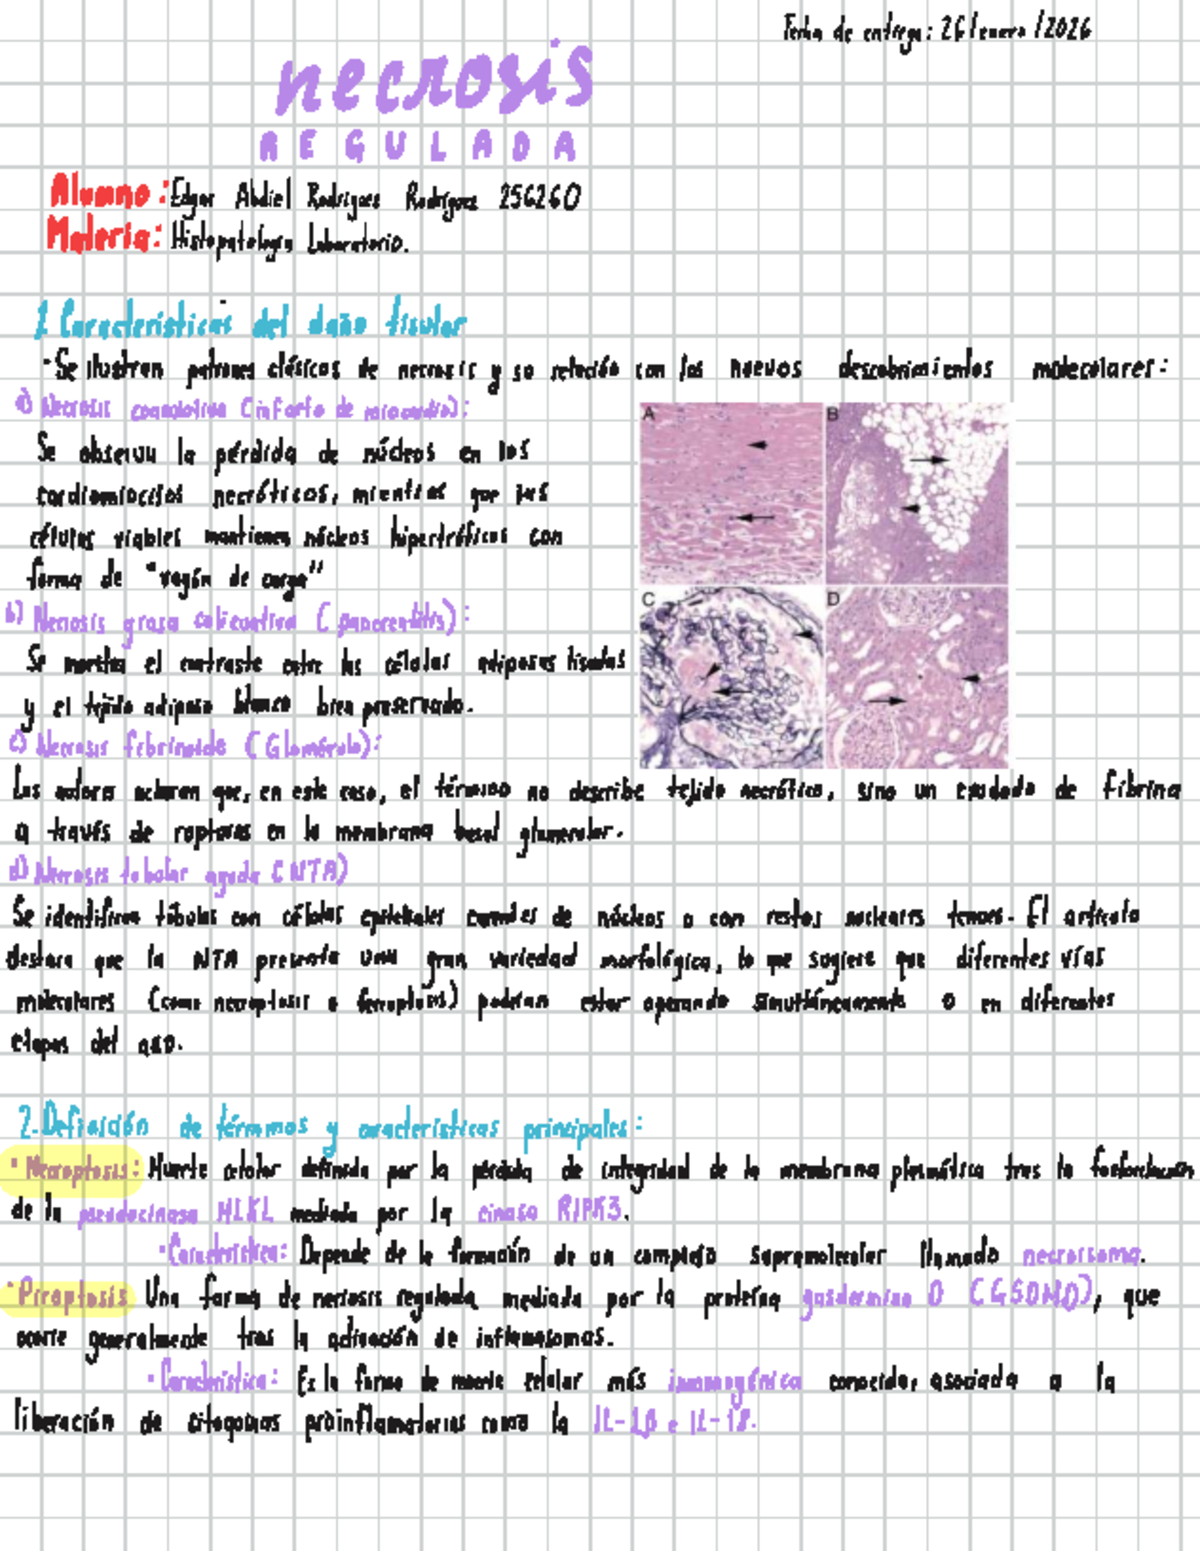 Fecha de entrega: 26/enero/2026
necrosis
REGULADA
Alumno: Edgar Abdiel Rodríguez Rodríguez 256260
Materia: Histopatología Laboratorio.
1. Características del daño tisular
· Se ilustran patrones clásicos de necrosis y su relación con los nuevos descubrimientos moleculares:
a) Necrosis coagulativa (infarto de miocardio):
Se observa la pérdida de núcleos en los
cardiomiocitos necróticos, mientras que las
células viables mantienen núcleos hipertróficos con
forma de "vagón de carga"
b) Necrosis grasa colicuativa (pancreatitis):
Se muestra el contraste entre las células adiposas
y el tejido adiposo blanco bien preservado.
c) Necrosis fibrinoide (Glomérulo):
Los autores aclaran que, en este caso, el término no describe tejido necrótico, sino un exudado de fibrina
a través de rupturas en la membrana basal glomerular.
d) Necrosis tubular aguda (NTA)
Se identifican túbulos con células epiteliales carentes de núcleos o con restos nucleares tenues. El artículo
destaca que la NTA presenta una gran variedad morfológica, lo que sugiere que diferentes vías
moleculares (como necroptosis o ferroptosis) podrían estar operando simultáneamente o en diferentes
etapas del
2. Definición de términos y características principales:
· Necroptosis: Muerte celular definida por la pérdida de integridad de la membrana plasmática tras la fosforilación
de la pseudocinasa MLKL mediada por la cinasa RIPK3.
· Característica: Depende de la formación de un complejo supramolecular llamado necrosoma.
· Piroptosis Una forma de necrosis regulada mediada por la proteína gasdermina D (GSDMD), que
ocurre generalmente tras la activación de inflamasomas.
· Característica: Es la forma de muerte celular más inmunogénica conocida, asociada a la
liberación de citoquinas proinflamatorias como la IL-1β e IL-18.
A
B
C
D